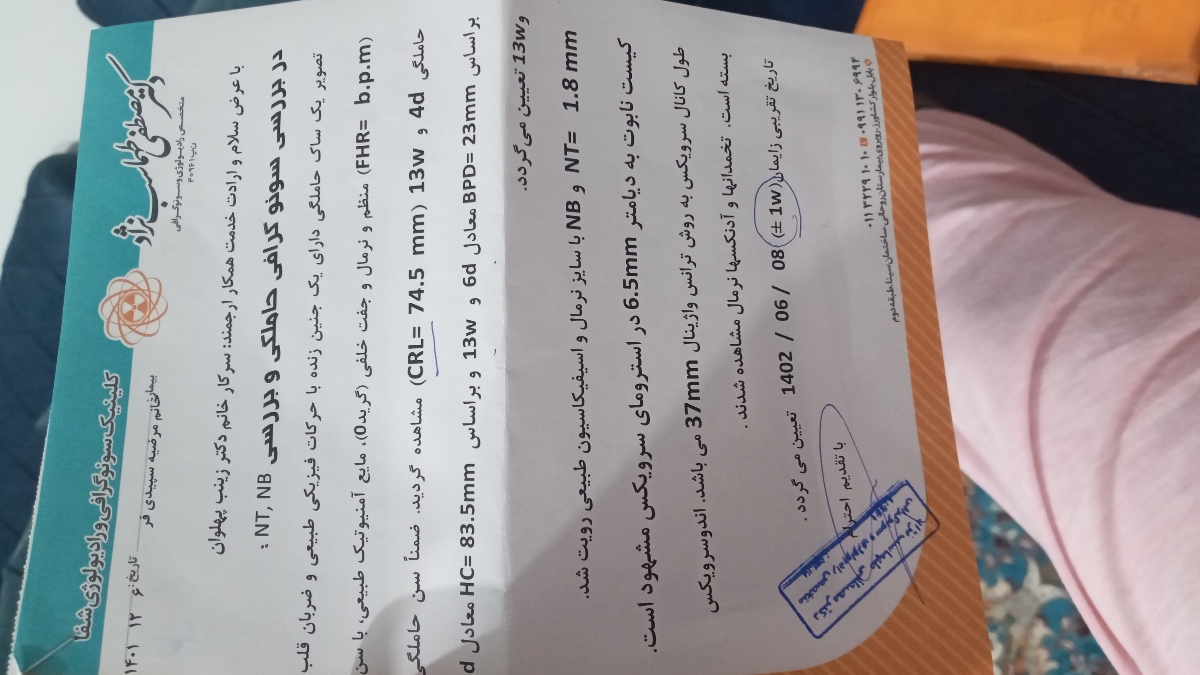 دکتر مصطفی طهماسب نژاد
متخصص رادیولوژی و سونوگرافی
ن.پ ۴۰۹۶۱
کلینیک سونوگرافی و رادیولوژی شفا
بیمار: خانم مرضیه سپیدی فر
تاریخ: ۶ ۱۲ ۱۴۰۱
با عرض سلام و ارادت خدمت همکار ارجمند: سرکار خانم دکتر زینب پهلوان
در بررسی سونو گرافی حاملگی و بررسی NT, NB :
تصویر یک ساک حاملگی دارای یک جنین زنده با حرکات فیزیکی طبیعی و ضربان قلب
(FHR= b.p.m) منظم و نرمال و جفت خلفی (گرید0)، مایع آمنیوتیک طبیعی، با سن
حاملگی 4d و 13w (CRL= 74.5 mm) مشاهده گردید. ضمناً سن حاملگی
براساس BPD= 23mm معادل 6d و 13w و براساس HC= 83.5mm معادل d
و13w تعیین می گردد.
NT= 1.8 mm و NB با سایز نرمال و اسیفیکاسیون طبیعی رویت شد.
کیست نابوت به دیامتر 6.5mm در استرومای سرویکس مشهود است.
طول کانال سرویکس به روش ترانس واژینال 37mm می باشد. اندوسرویکس
بسته است. تخمدانها و آدنکسها نرمال مشاهده شدند.
تاریخ تقریبی زایمان (± 1w) 1402 / 06 / 08 تعیین می گردد.
با تقدیم احترام
بابل، بلوار کشاورز، روبروی بیمارستان روحانی، ساختمان سینا، طبقه دوم
۰۱۱ ۳۲۲۹ ۱۰ ۱۰ ۰۹۹۱ ۱۳۰ ۶۹۹۴